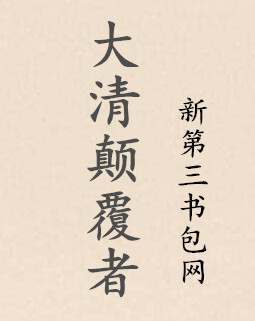 大清颠覆者
新第三书包网